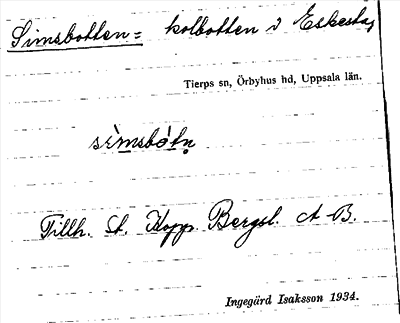 Simsbotten = kolbotten i Eskesta,
Tierps sn, Örbyhus hd, Uppsala län.
sìmsbót̀n̥
Tillh. St. Kopp. Bergsl. A B.
Ingegärd Isaksson 1934.